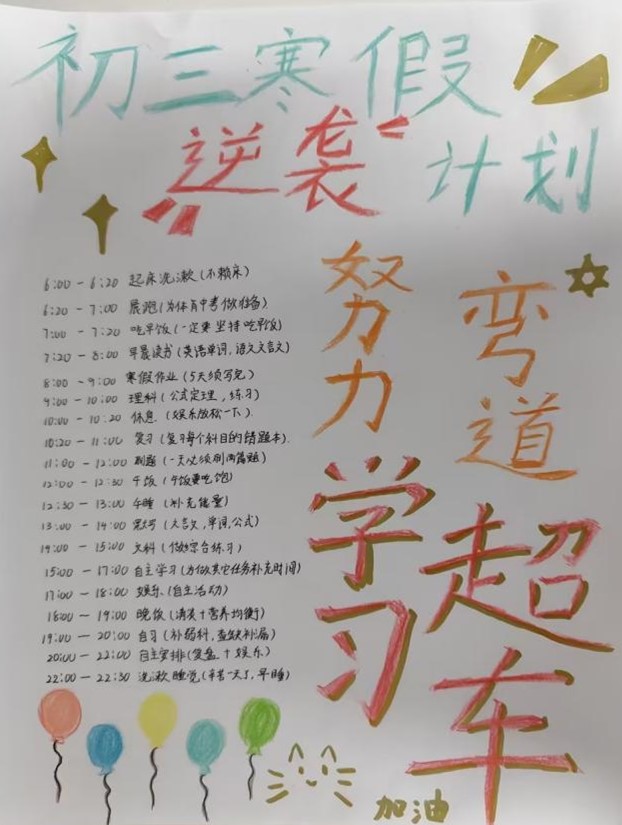 初三寒假
逆袭计划
6:00 - 6:20 起床洗漱(不赖床)
6:20 - 7:00 晨跑(为体育中考做准备)
7:00 - 7:20 吃早饭(一定要坚持吃早饭)
7:20 - 8:00 早晨读书(英语单词,语文文言文)
8:00 - 9:00 寒假作业(5天须写完)
9:00 - 10:00 理科(公式定理,练习)
10:00 - 10:20 休息(娱乐放松一下).
10:20 - 11:00 复习(复习每个科目的错题本).
11:00 - 12:00 刷题(一天必须刷两篇题)
12:00 - 12:30 午饭(午饭要吃饱)
12:30 - 13:00 午睡(补充能量)
13:00 - 14:00 (文言文,单词,公式)
14:00 - 15:00 文科(做综合练习)
15:00 - 17:00 自主学习(为做其它任务补充时间)
17:00 - 18:00 娱乐(自主活动)
18:00 - 19:00 晚饭(清淡+营养均衡)
19:00 - 20:00 自习(补弱科,查缺补漏)
20:00 - 22:00 自主安排(复盘+娱乐)
22:00 - 22:30 洗漱睡觉(辛苦一天了,早睡)
努力学习
弯道超车
加油